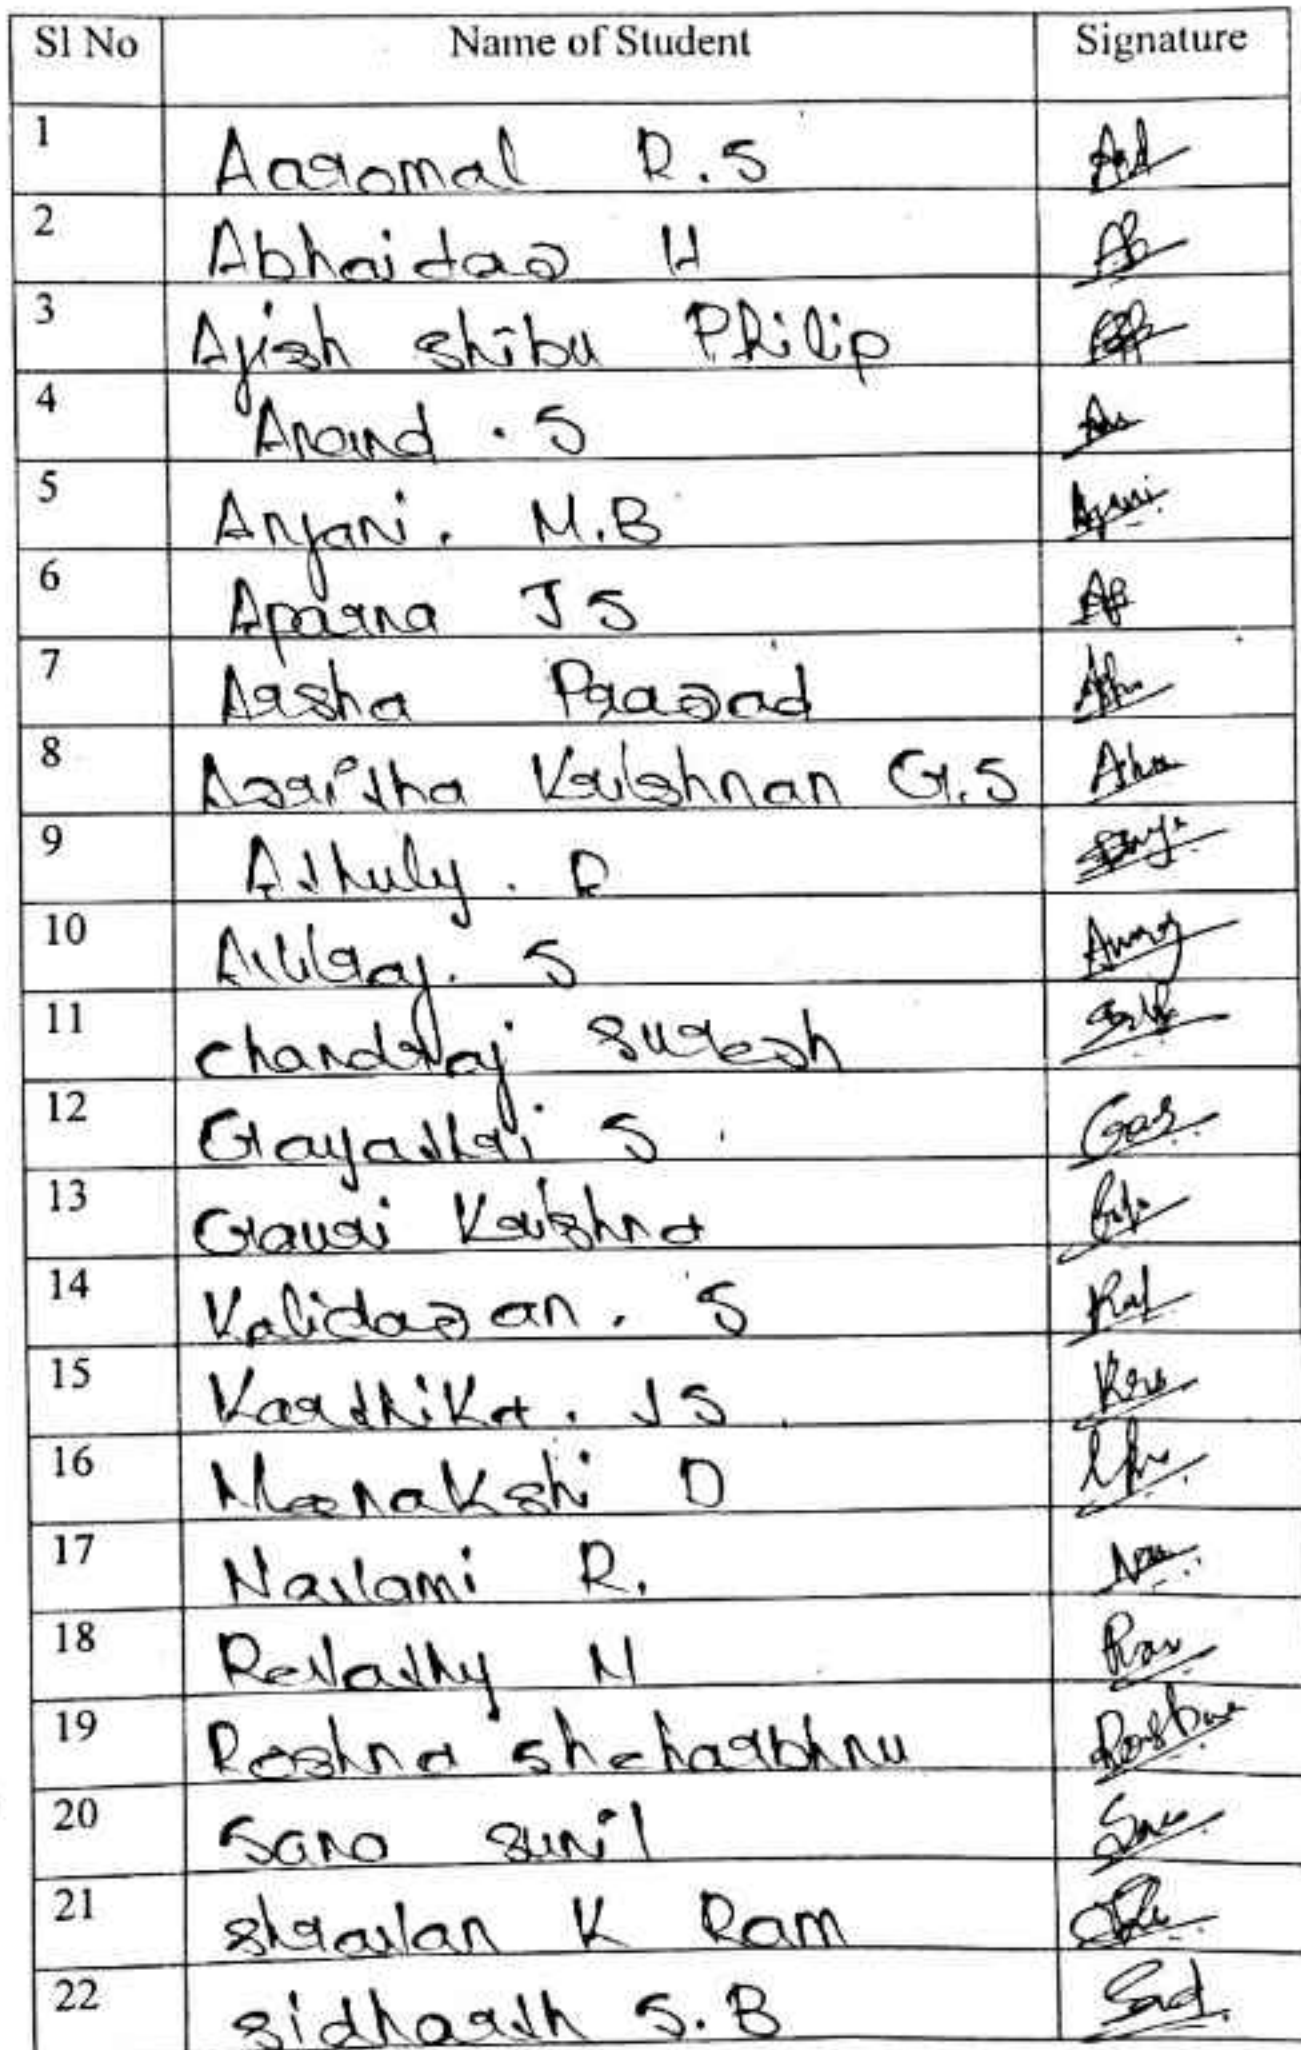 Sl No Name of Student Signature
1 Aaromal R.S
2 Abhaidas H
3 Ajish Shibu Philip
4 Anand . S
5 Anjani. M.B
6 Aparna J S
7 Arsha Prasad
8 Asritha Krishnan G.S
9 Athuly . R
10 S
11 Chandraj Suresh
12 Gayathri S
13 Gauri Krishna
14 Kalidasan . S
15 Karthika . J S
16 Meenakshi D
17 R.
18 Revathy M
19 Roshna
20 Sana Sunil
21 Shravan K Ram
22 Sidharth S.B